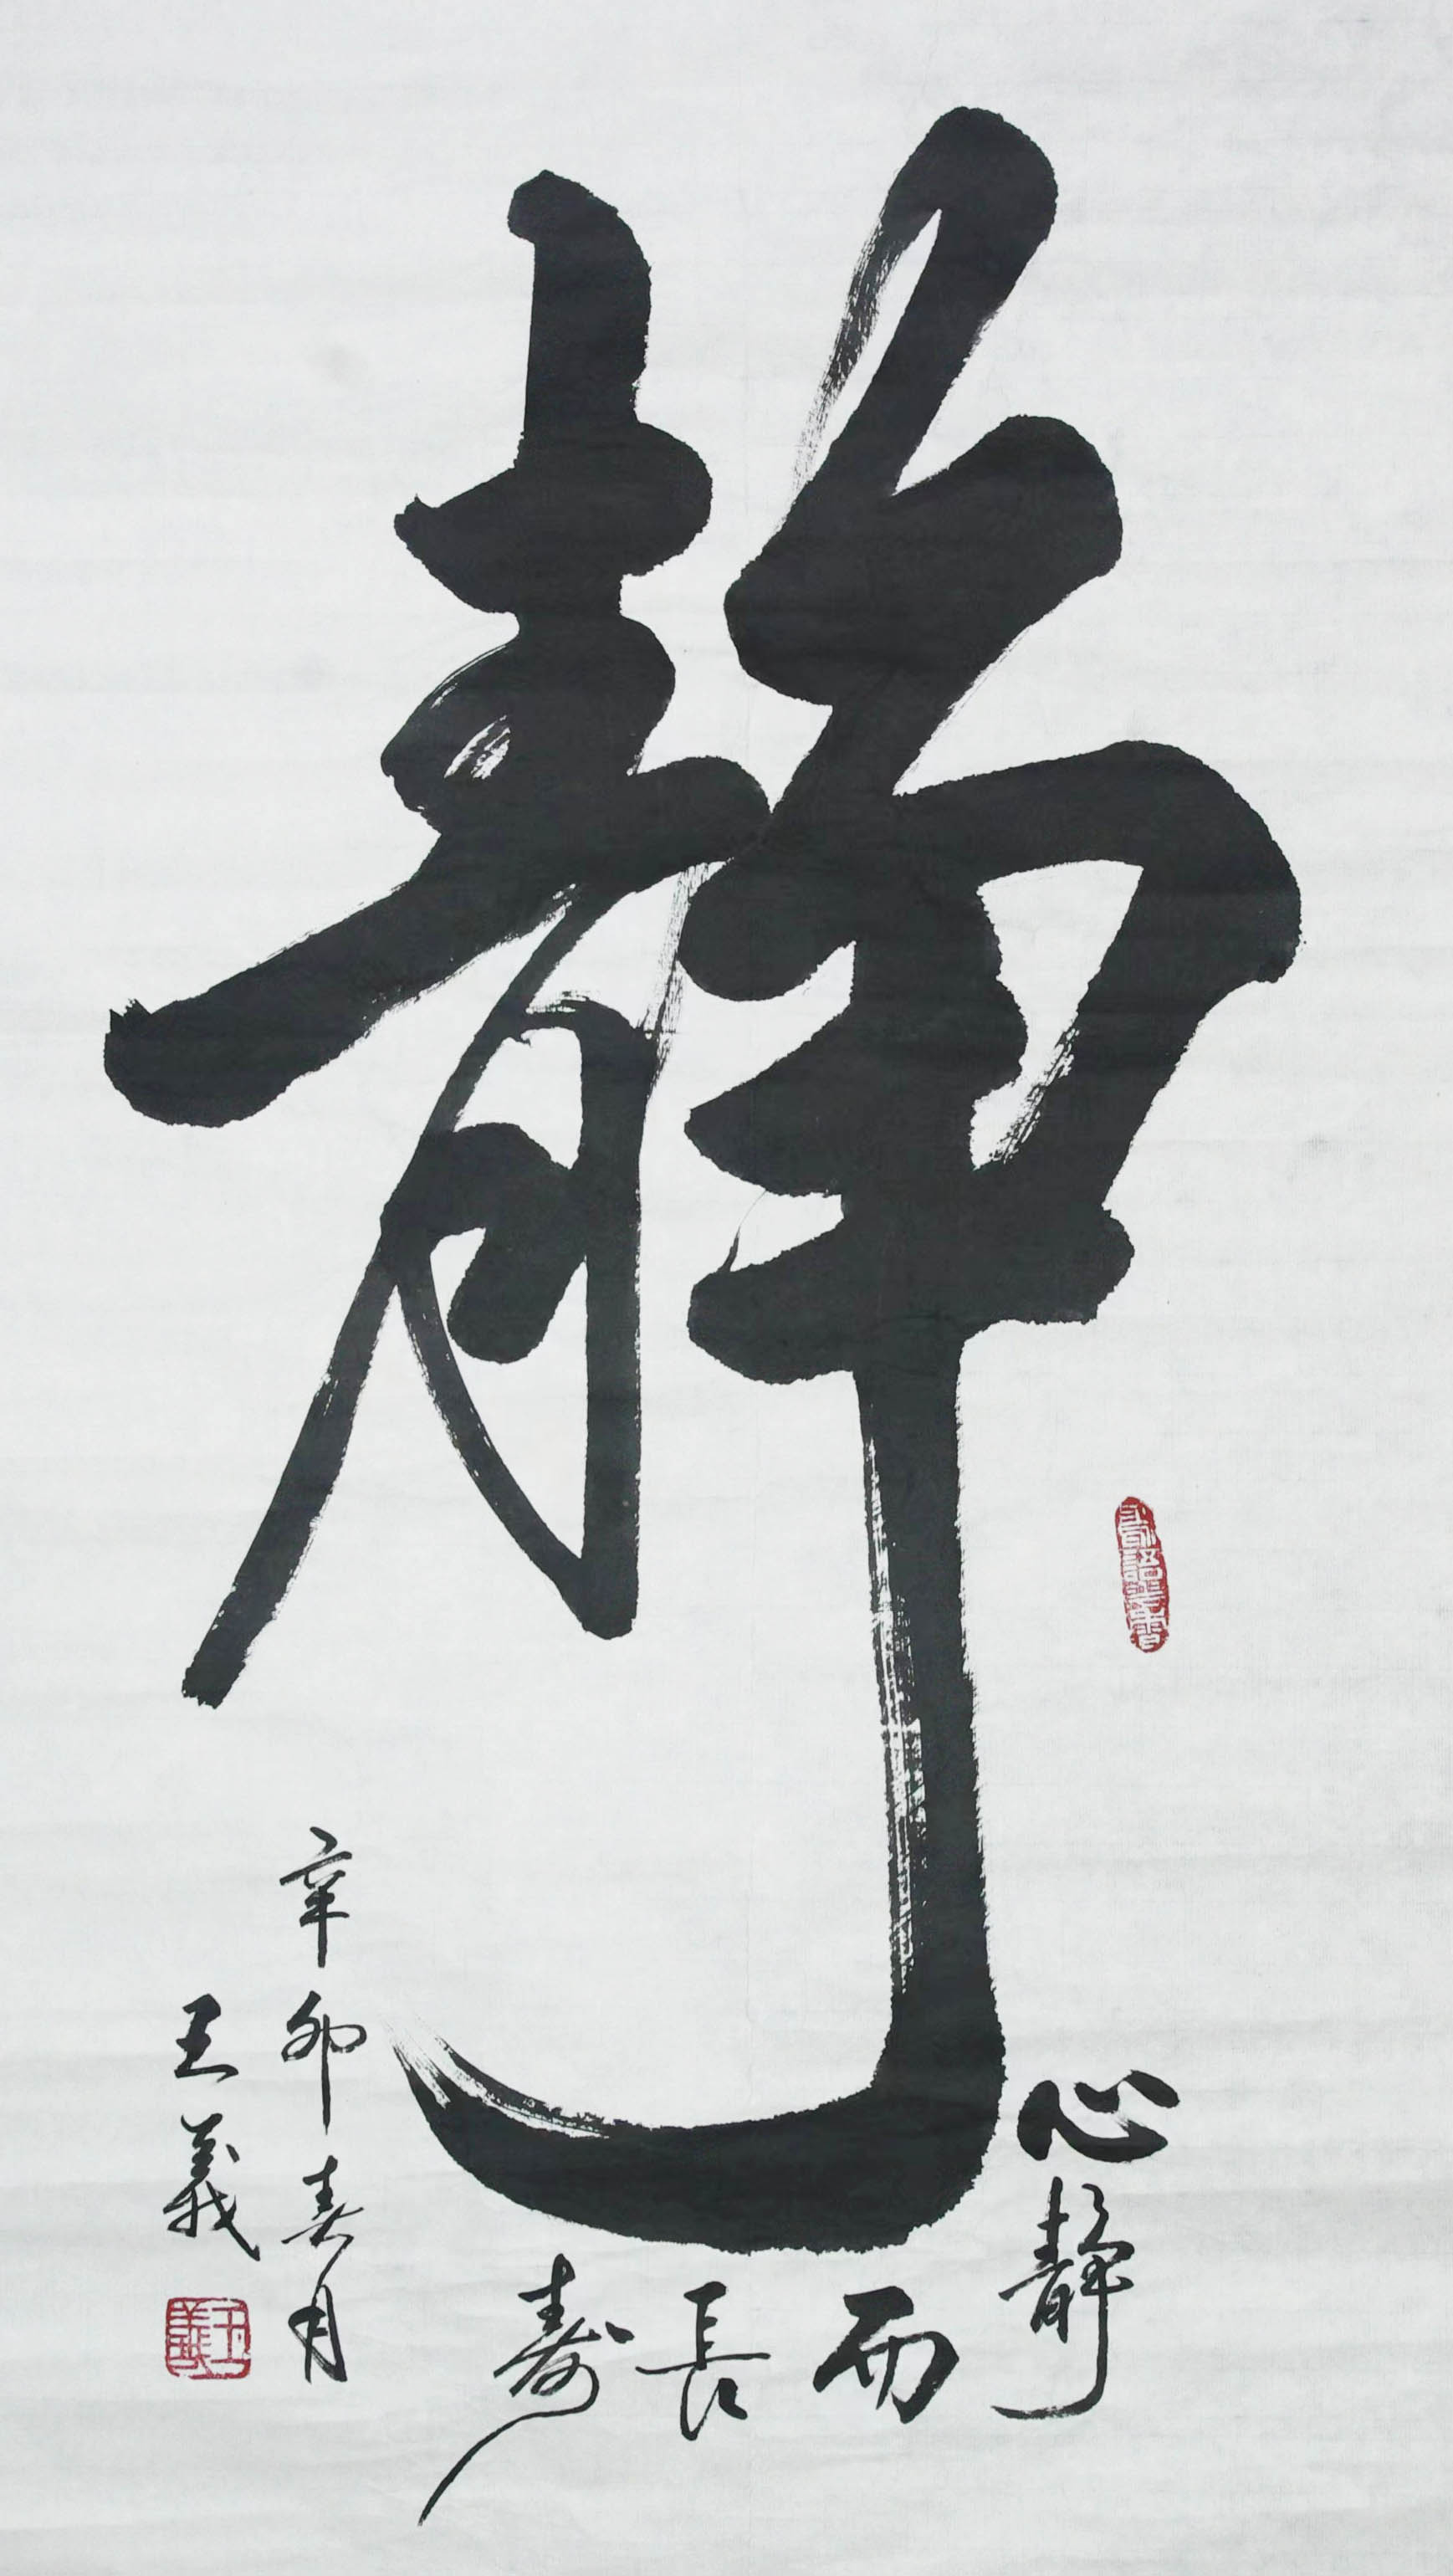 靜
心靜而長壽
辛卯春月
王義
王義